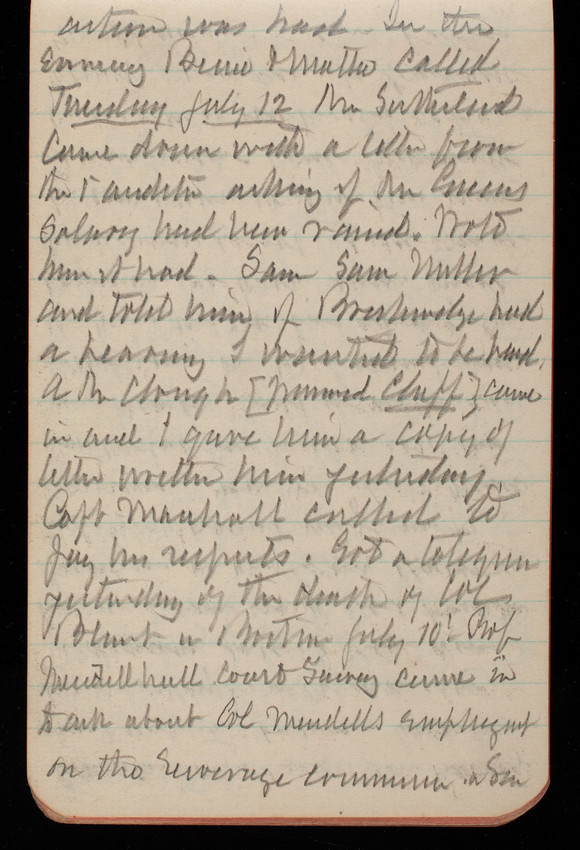 action was had. In the
Evening Bessie & Mattie called
Tuesday July 12 Mr Sutherland
Came down with a letter from
the 5 auditor asking if Mr Cucuus
Salary had been raised. Wrote
him it had. Saw Sam Miller
and told him if Breckinridge had
a hearing I wanted to be heard.
A Mr Clough [pronounced Cluff] came
in and I gave him a copy of
letter written him yesterday.
Capt Marshall called to
pay his respects. Got a telegram
yesterday of the death of Col
Blunt in Boston July 10th Prof
Mendenhall Coast Survey came in
to ask about Col Mendells employment
on the Sewerage commission. a Sen